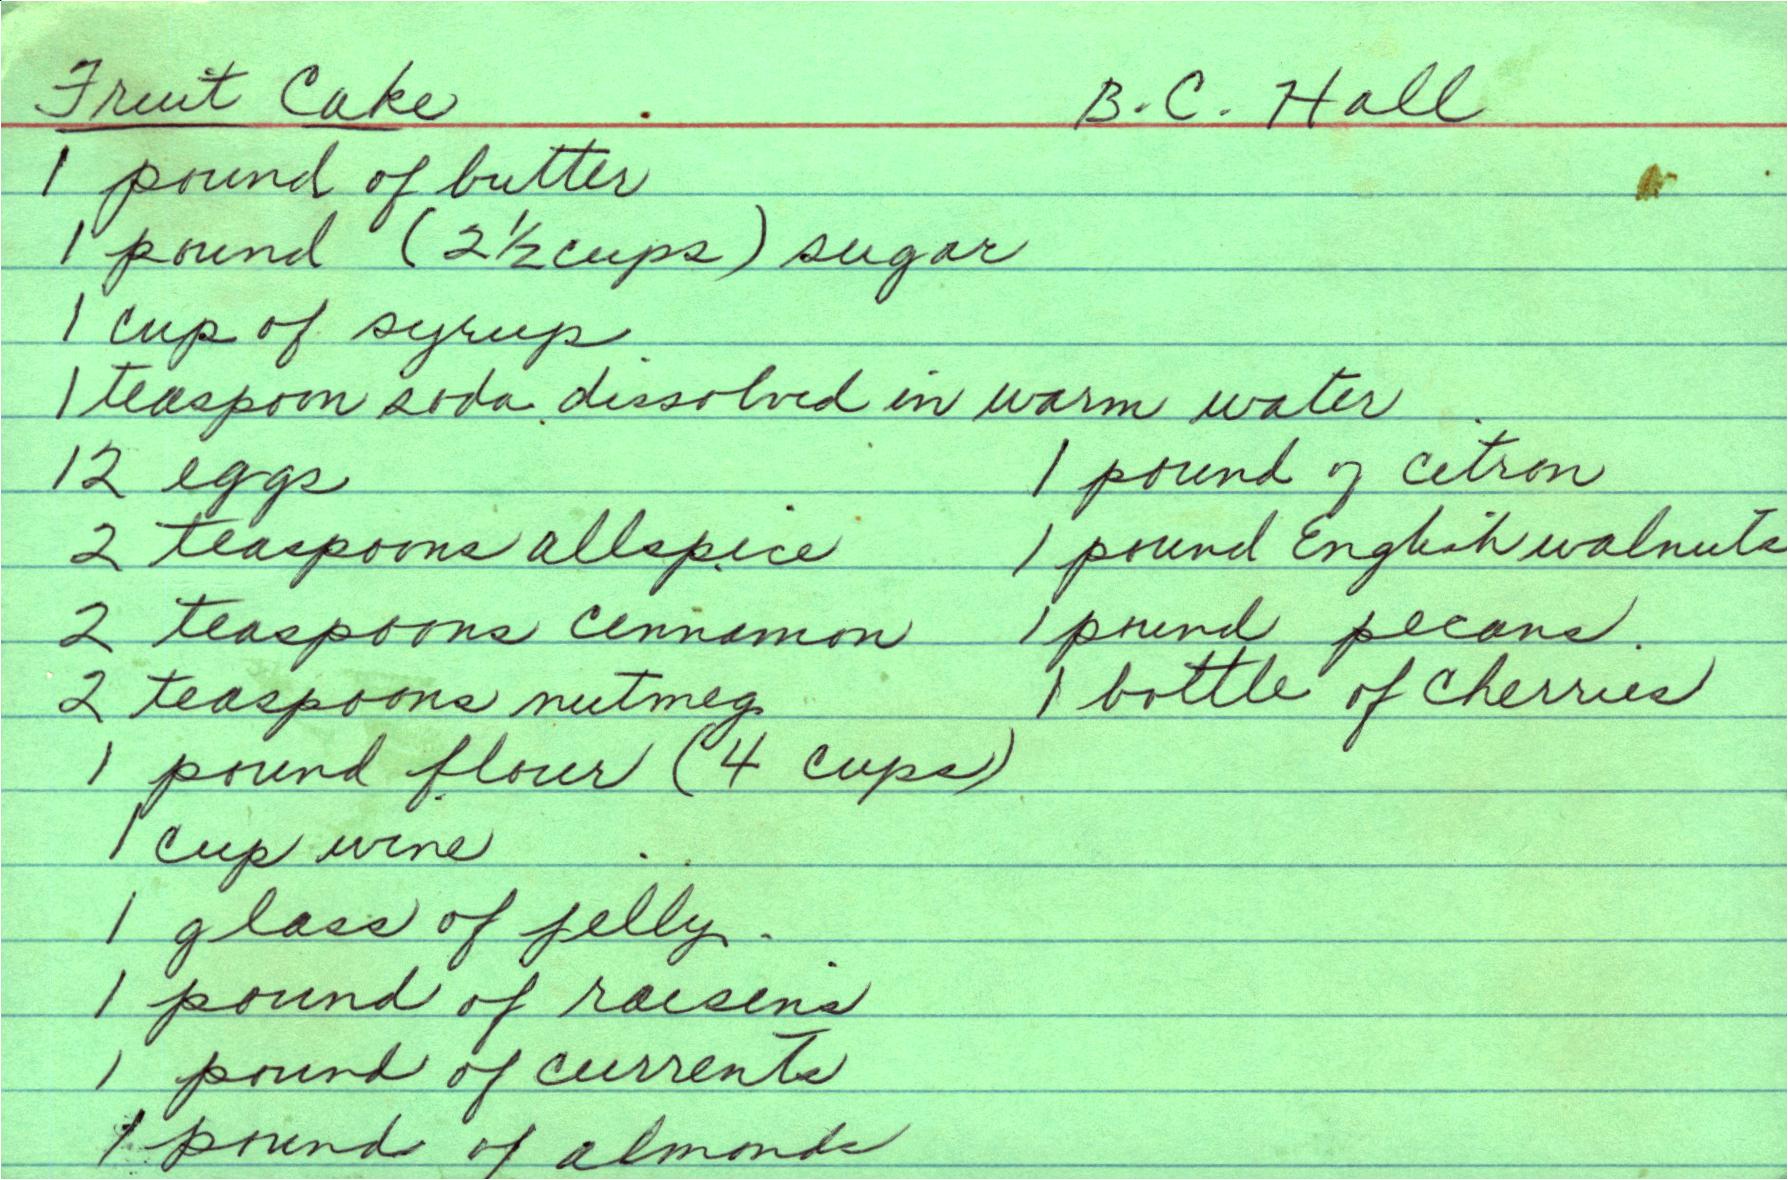 Fruit Cake B. C. Hall
1 pound of butter
1 pound (2 1/2 cups) sugar
1 cup of syrup
1 teaspoon soda dissolved in warm water
12 eggs
2 teaspoons allspice
2 teaspoons cinnamon
2 teaspoons nutmeg
1 pound flour (4 cups)
1 cup wine
1 glass of jelly.
1 pound of raisins
1 pound of currents
1 pound of almonds
1 pound of citron
1 pound English walnuts
1 pound pecans.
1 bottle of cherries